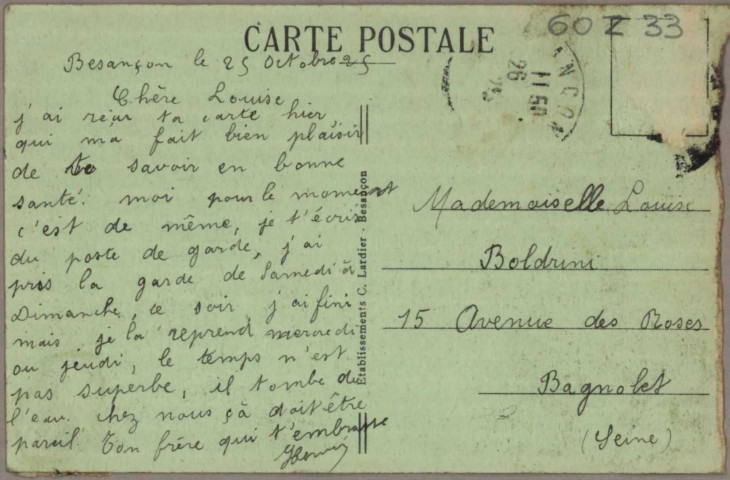 60 Z 33
CARTE POSTALE
Besançon le 25 Octobre 25
11 50
26
Chère Louise
j'ai reçu ta carte hier
qui ma fait bien plaisir
de te savoir en bonne
santé. moi pour le moment
c'est de même, je t'écris
du poste de garde, j'ai
pris la garde de Samedi à
Dimanche, ce soir j'ai fini
mais je la reprend mercredi
ou jeudi, le temps n'est
pas superbe, il tombe de
l'eau. chez nous çà doit être
pareil. Ton frère qui t'embrasse
Etablissements C. Lardier - Besançon
Mademoiselle Louise
Boldrini
15 Avenue des Roses
Bagnolet
(Seine)